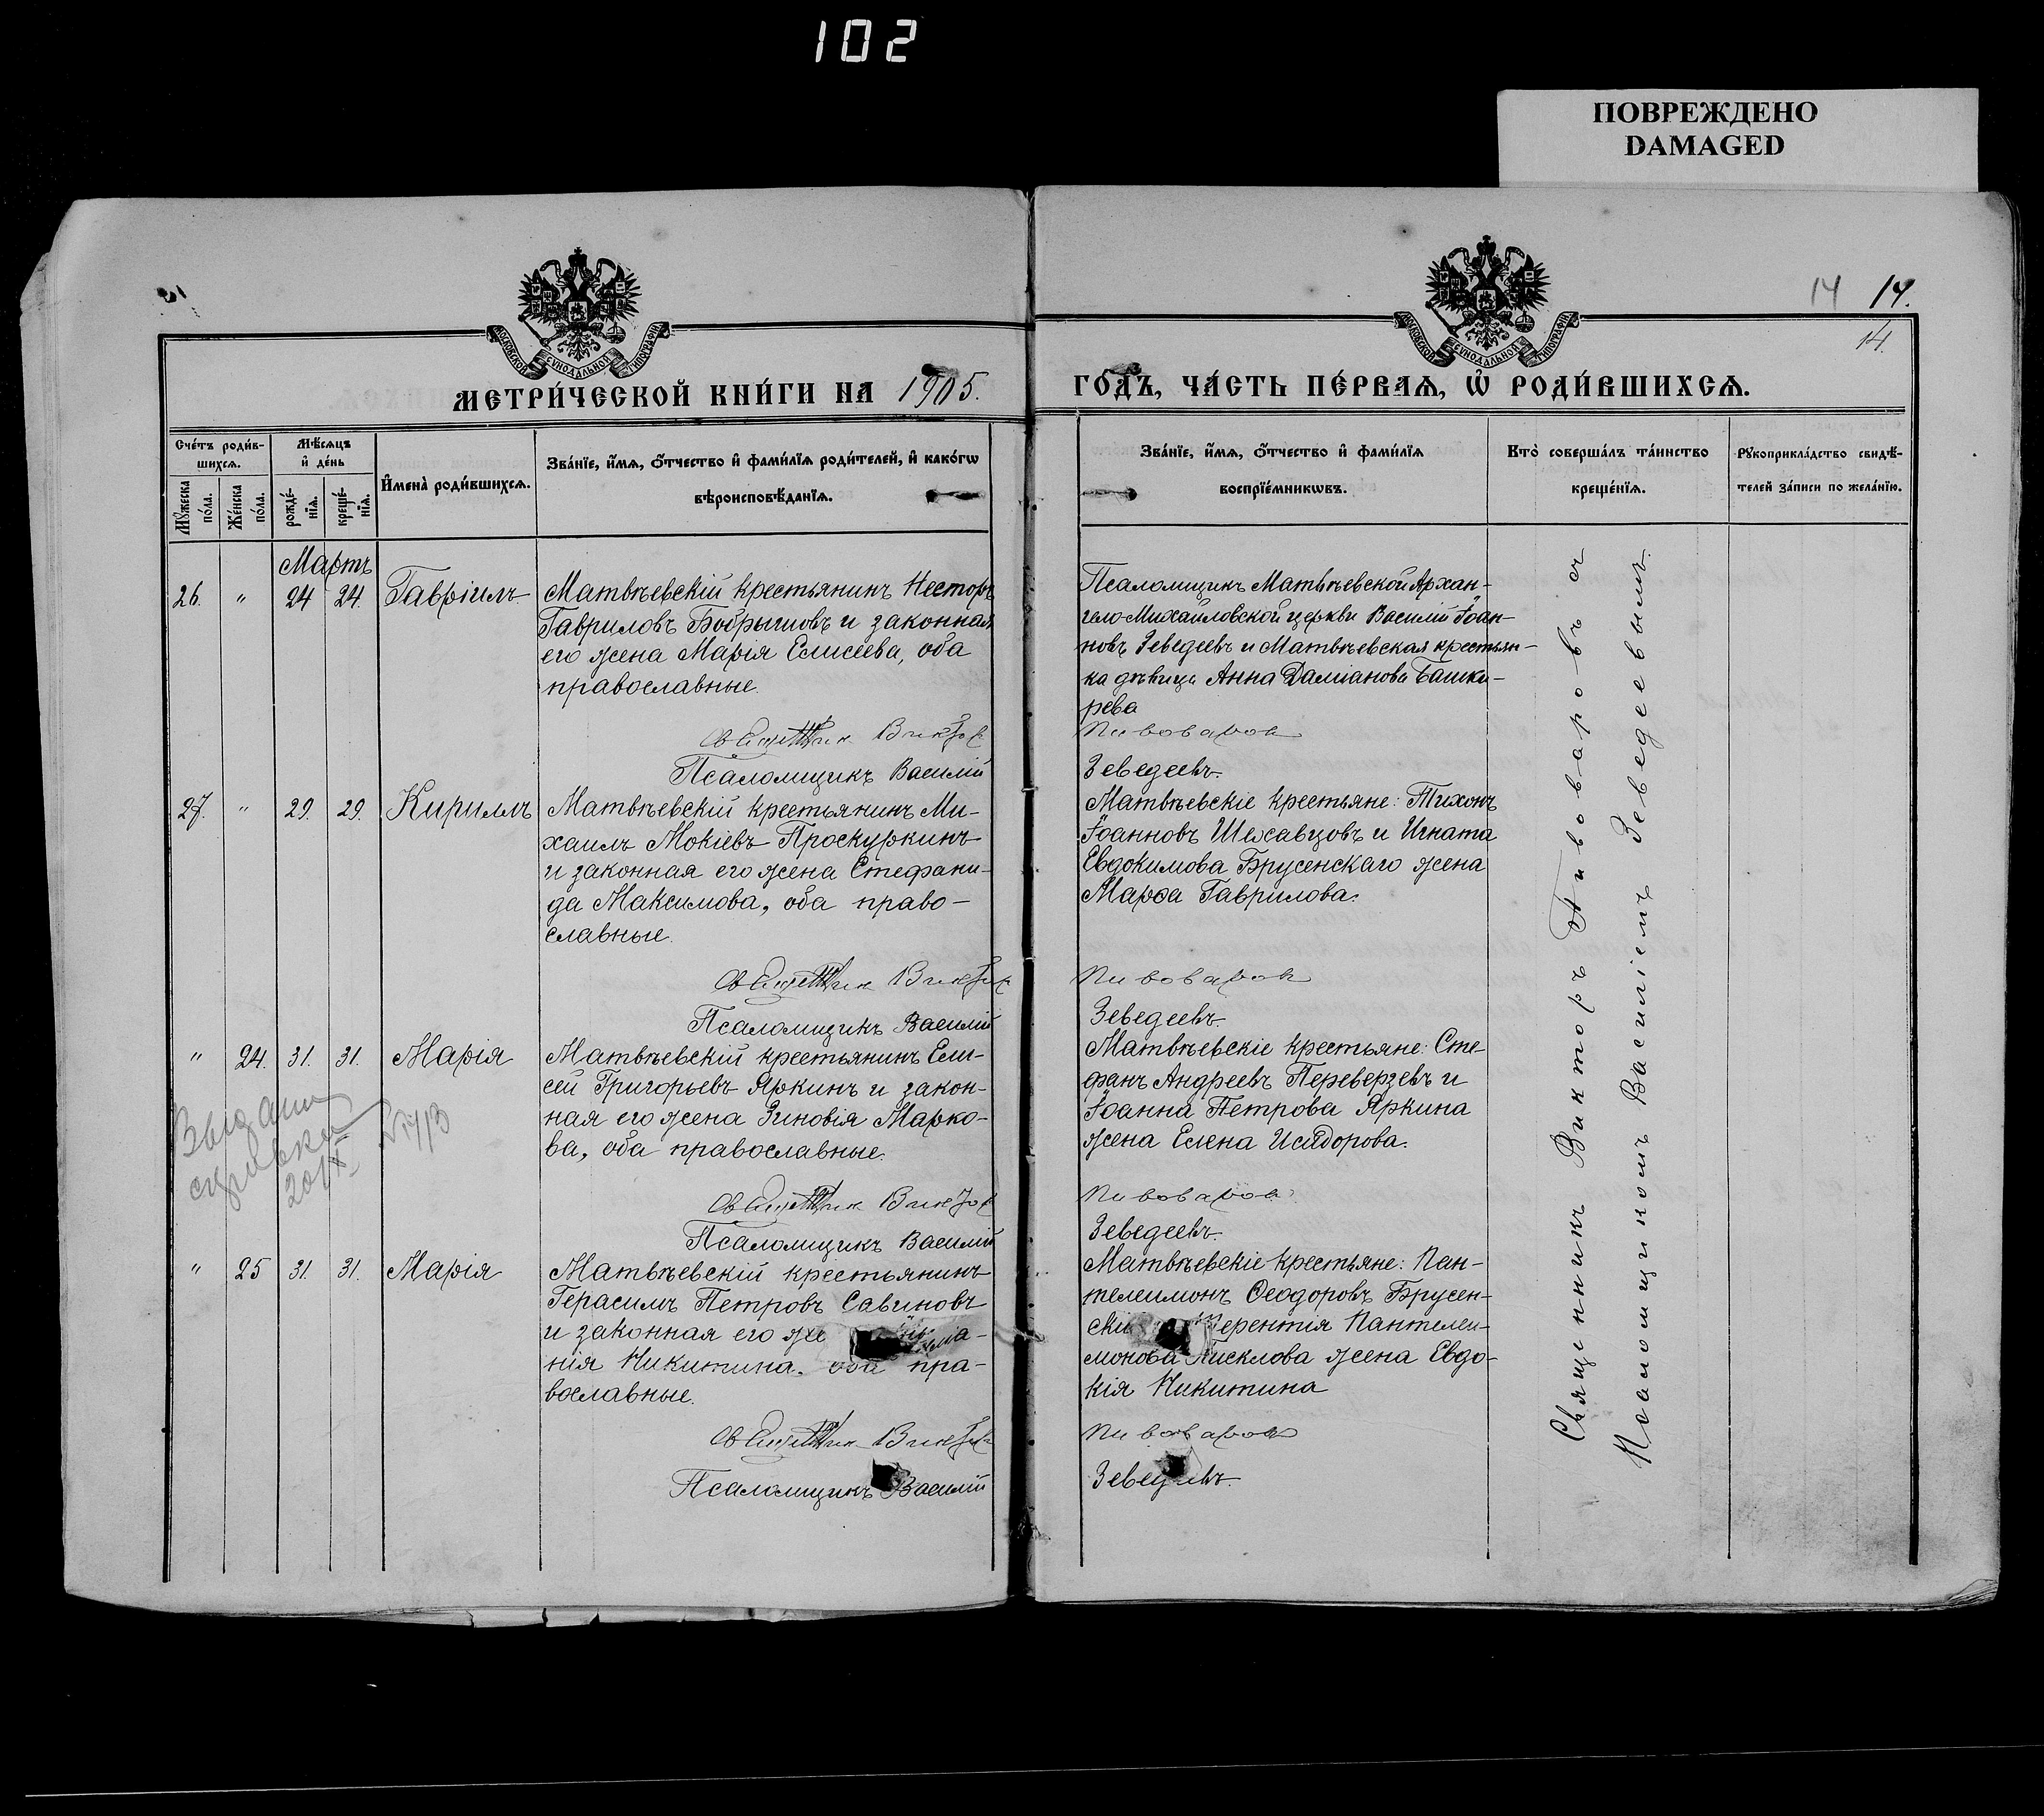 102
ПОВРЕЖДЕНО
DAMAGED
14 14.
14.
МОСКОВСКОЙ СѴНОДАЛЬНОЙ ТИПОГРАФІИ
МОСКОВСКОЙ СѴНОДАЛЬНОЙ ТИПОГРАФІИ
МЕТРИ́ЧЕСКОЙ КНИ́ГИ НА 1905.
ГО́ДЪ, ЧА́СТЬ ПЕ́РВАѦ, Ѡ҆ РОДИ́ВШИХСѦ.
Сче́тъ роди́в-
шихсѧ.
Мꙋ́жеска по́ла.
Же́нска по́ла.
Мѣ́сѧцъ
и҆ де́нь
рожде́-
нїѧ.
креще́-
нїѧ.
И҆мена̀ роди́вшихсѧ.
Зва́нїе, и҆́мѧ, ѻ҆́тчество и҆ фами́лїѧ роди́телей, и҆ како́гѡ
вѣроисповѣ́данїѧ.
Зва́нїе, и҆́мѧ, ѻ҆́тчество и҆ фами́лїѧ
воспрїе́мникѡвъ.
Кто̀ соверша́лъ та́инство
креще́нїѧ.
Рꙋкоприкла́дство свидѣ́-
телей за́писи по жела́нїю.
Мартъ
26. " 24 24. Гавріилъ
Матвѣевскій крестьянинъ Несторъ
Гавриловъ Бобрышовъ и законная
его жена Марія Елисеева, оба
православные.
Священник Виктор
Псаломщикъ Василій
Псаломщикъ Матвѣевской Архан-
гело-Михайловской церкви Василій Іоан-
новъ Зеведеевъ и Матвѣевская крестьян-
ка дѣвица Анна Даміанова Башки-
рева
Пивоваров
Зеведеевъ.
27. " 29. 29. Кириллъ
Матвѣевскій крестьянинъ Ми-
хаилъ Мокіевъ Проскуркинъ
и законная его жена Стефани-
да Максимова, оба право-
славные.
Священник Виктор
Псаломщикъ Василій
Матвѣевскіе крестьяне: Тихонъ
Іоанновъ Шехавцовъ и Игната
Евдокимова Брусенскаго жена
Марѳа Гаврилова.
Пивоваров
Зеведеевъ.
" 24. 31. 31. Марія
Матвѣевскій крестьянинъ Ели-
сей Григорьевъ Яркинъ и закон-
ная его жена Зиновія Марко-
ва, оба православные.
Выдана
справка
20/X
Священник Виктор
Псаломщикъ Василій
Матвѣевскіе крестьяне: Сте-
фанъ Андреевъ Переверзевъ и
Іоанна Петрова Яркина
жена Елена Исидорова.
Пивоваров
Зеведеевъ.
" 25 31. 31. Марія
Матвѣевскій крестьянинъ
Герасимъ Петровъ Савиновъ
и законная его же
нія Никитина. оба пра-
вославные.
Священник Виктор
Псаломщикъ Василій
Матвѣевскіе крестьяне: Пан-
телеимонъ Ѳеодоровъ Брусен-
скій Терентія Пантелеи-
монова Кисклова жена Евдо-
кія Никитина
Пивоваров
Зеведеевъ.
Священникъ Викторъ Пивоваровъ съ
Псаломщикомъ Василіемъ Зеведеевымъ.